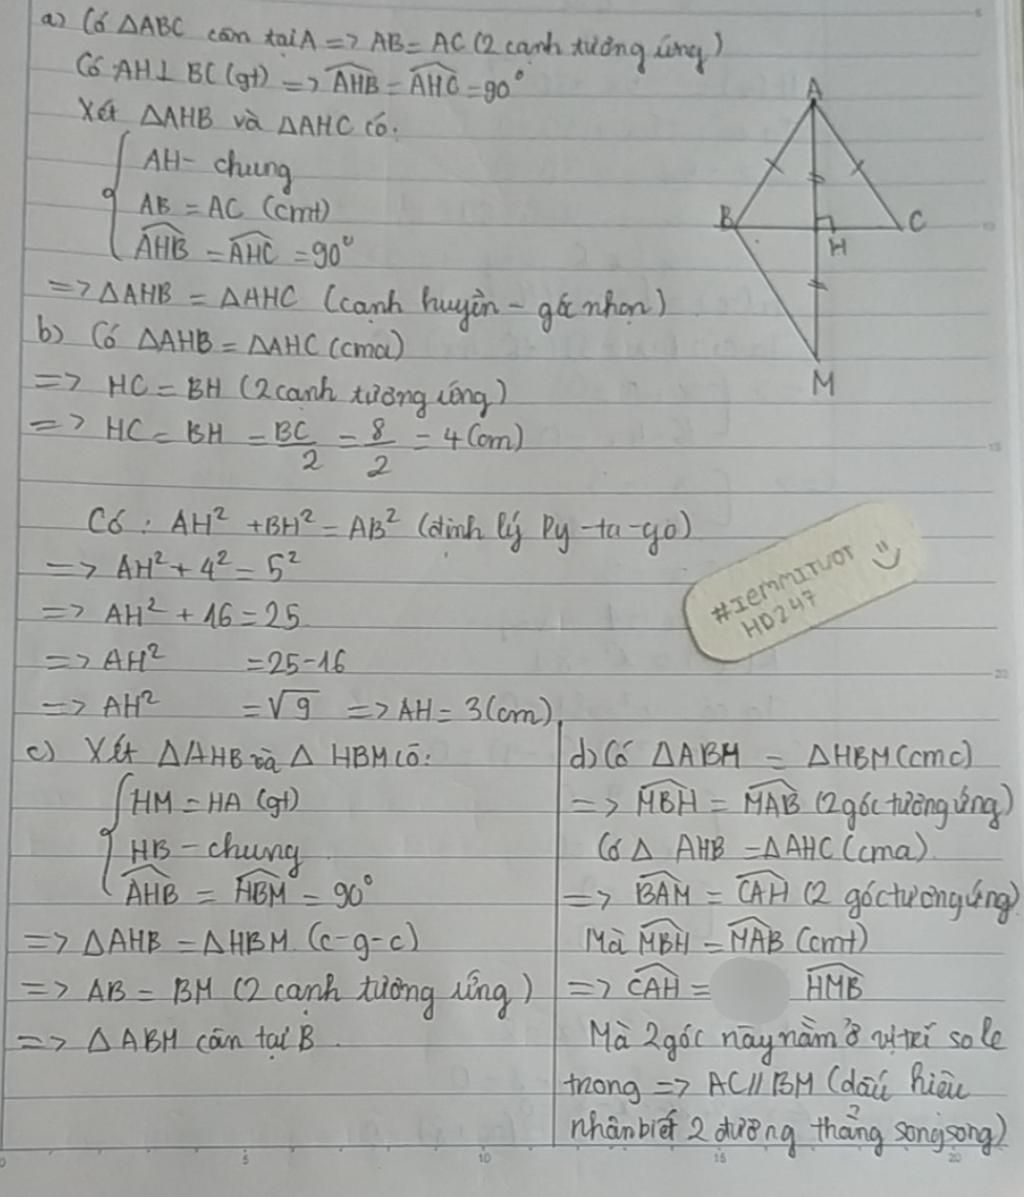 a) Có ΔABC cân tại A => AB = AC (2 cạnh tương ứng)
Có AH⊥ BC (gt) => \widehat{AHB} = \widehat{AHC} = 90°
Xét ΔAHB và ΔAHC có:
AH - chung
AB = AC (cmt)
\widehat{AHB} = \widehat{AHC} = 90°
=> ΔAHB = ΔAHC (cạnh huyền - góc nhọn)
A
B
C
H
M
b) Có ΔAHB = ΔAHC (cma)
=> HC = BH (2 cạnh tương ứng)
=> HC = BH = \frac{BC}{2} = \frac{8}{2} = 4 (cm)
Có : AH² + BH² = AB² (định lý Py-ta-go)
=> AH² + 4² = 5²
=> AH² + 16 = 25
=> AH² = 25-16
=> AH² = √9 => AH = 3 (cm)
#IEMMITUOT
HD247
c) Xét ΔAHB và Δ HBM có:
HM = HA (gt)
HB - chung
\widehat{AHB} = \widehat{HBM} = 90°
=> ΔAHB = ΔHBM (c-g-c)
=> AB = BM (2 cạnh tương ứng)
=> ΔABM cân tại B.
d) Có ΔABH = ΔHBM (cmc)
=> \widehat{MBH} = \widehat{MAB} (2 góc tương ứng)
Có Δ AHB = ΔAHC (cma)
=> \widehat{BAM} = \widehat{CAH} (2 góc tương ứng)
Mà \widehat{MBH} = \widehat{MAB} (cmt)
=> \widehat{CAH} = \widehat{HMB}
Mà 2 góc này nằm ở vị trí so le
trong => AC // BM (dấu hiệu
nhân biết 2 đường thẳng song song)
0 5 10 15 20